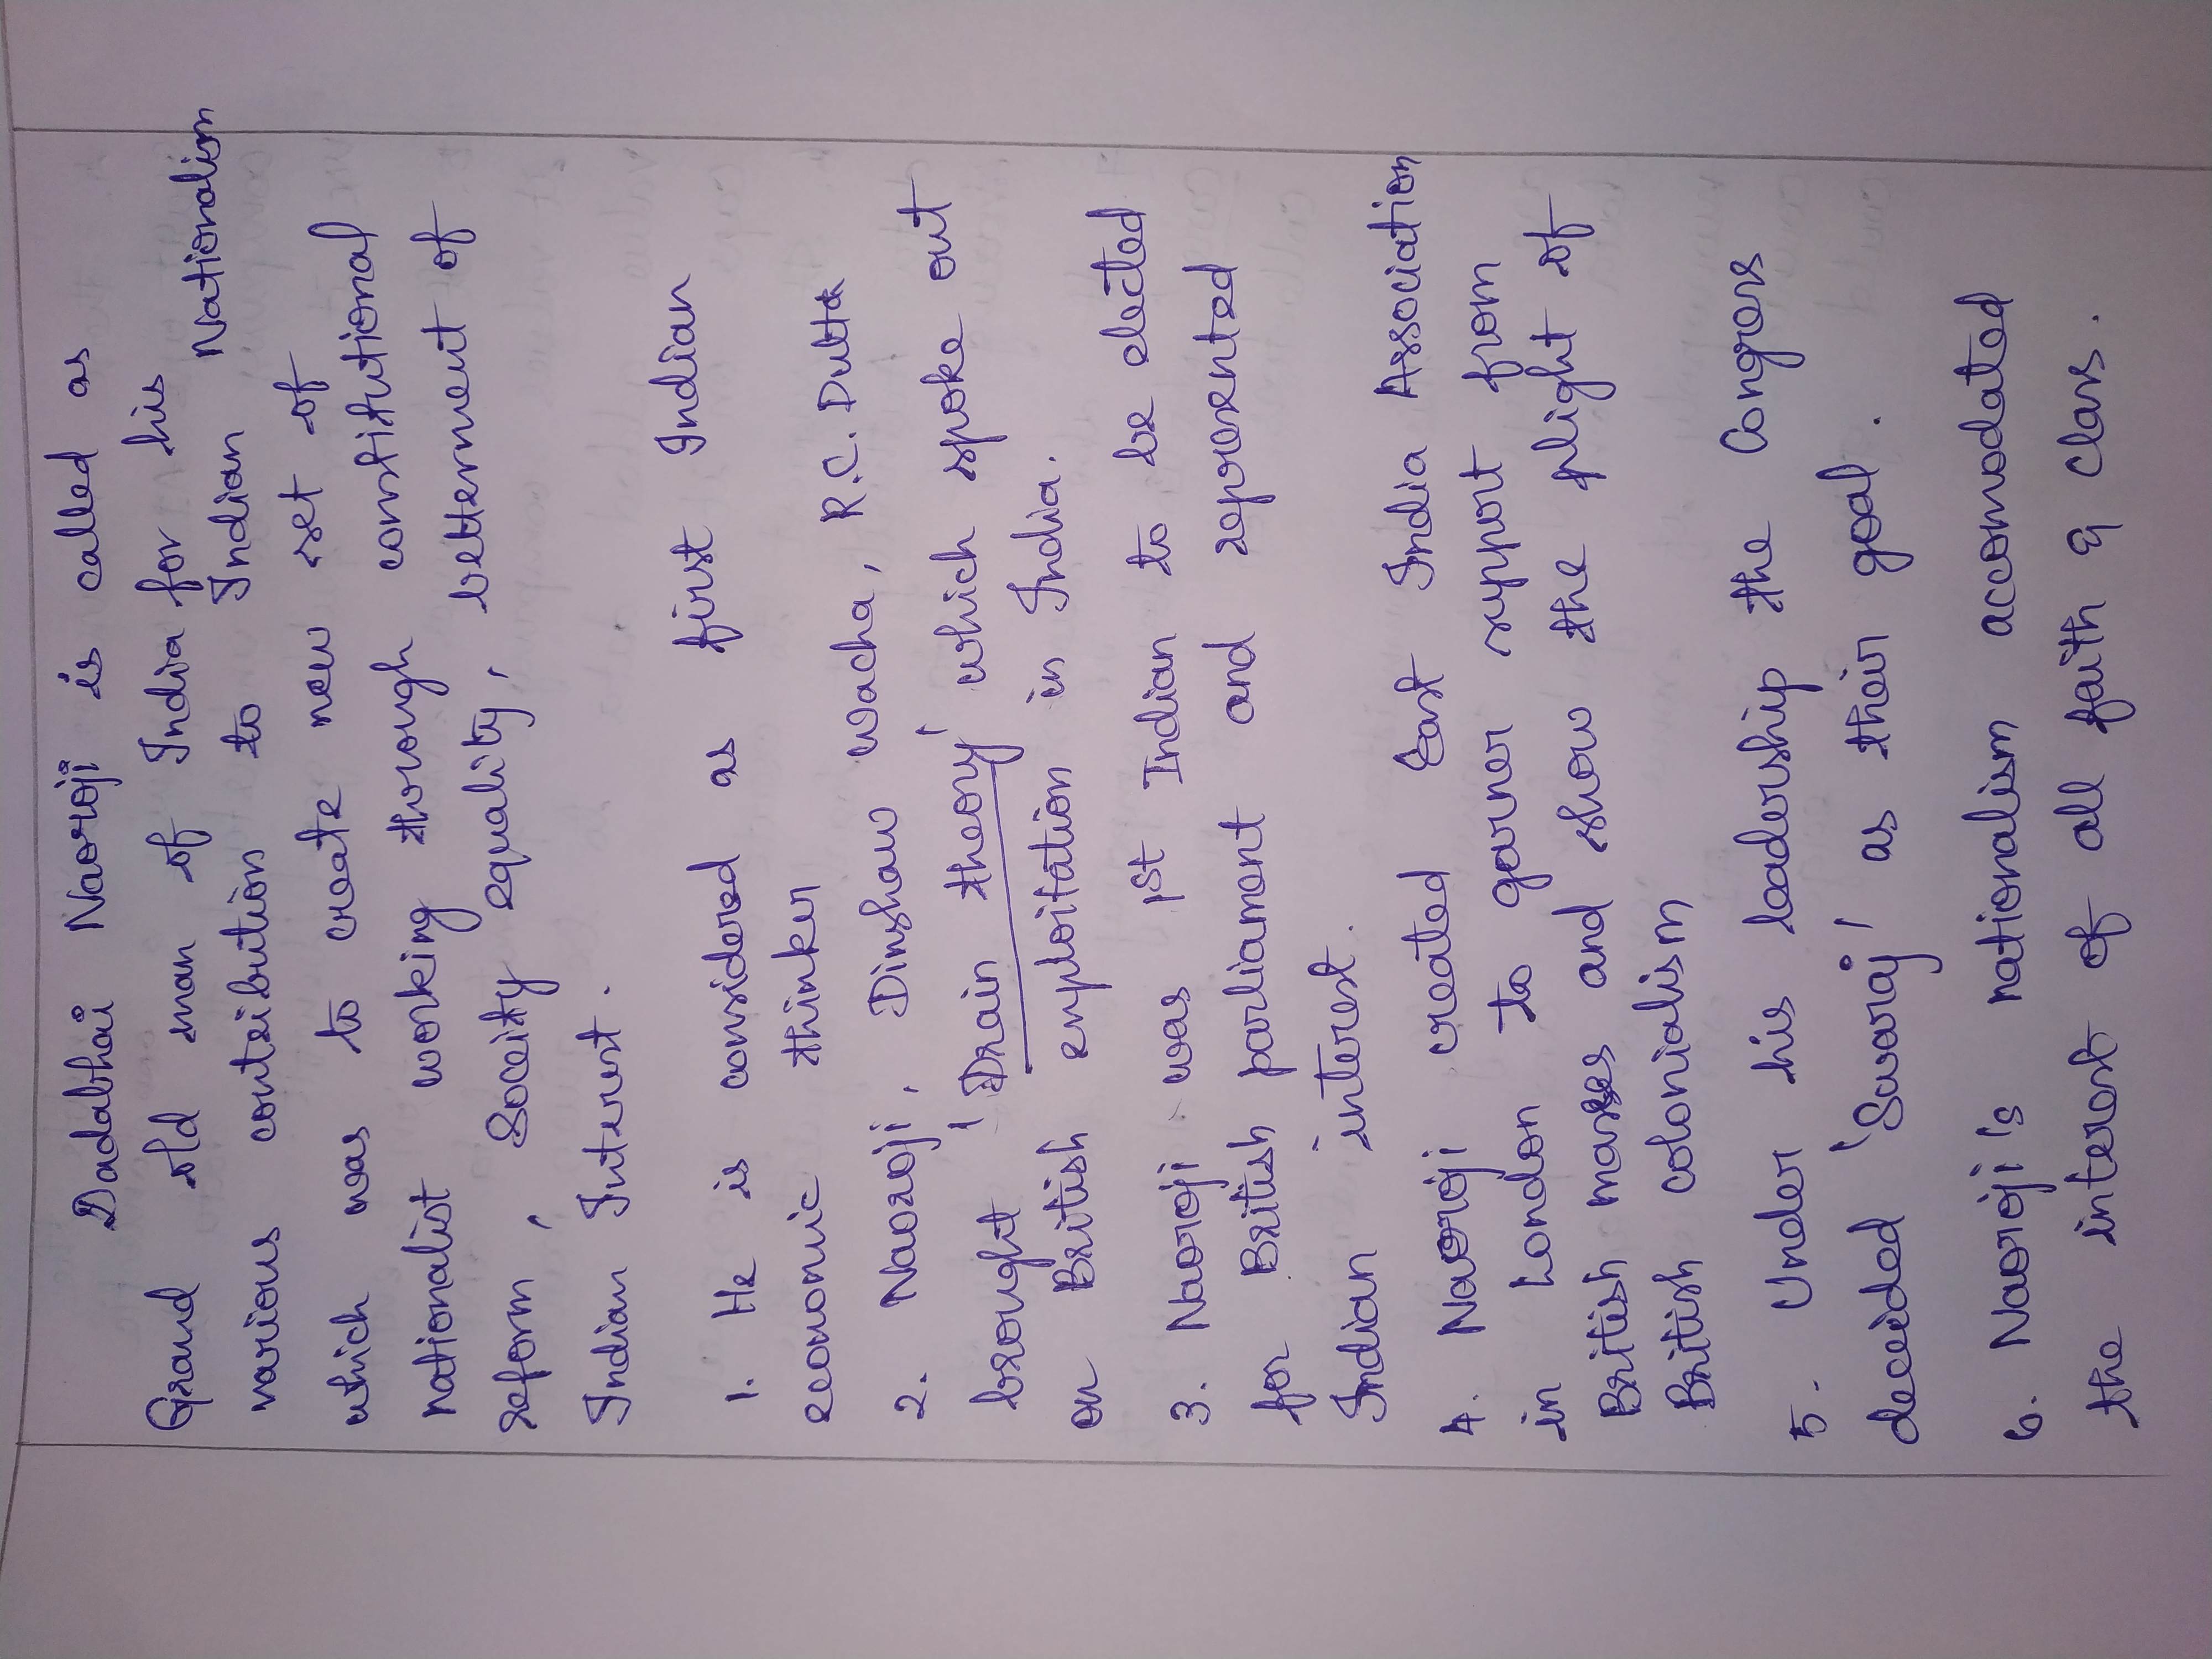 Dadabhai Naoroji is called as
Grand old man of India for his
various contribution to Indian Nationalism
which was to create new set of
nationalist working through constitutional
reform, Soceity equality, betterment of
Indian Interest.
1. He is considered as first Indian
economic thinker
2. Naoroji, Dinshaw wacha, R.C. Dutta
brought 'Drain theory' which spoke out
on British exploitation in India.
3. Naoroji was 1st Indian to be elected
for British parliament and represented
Indian interest.
4. Naoroji created East India Association
in London to garner support from
British masses and show the plight of
British colonialism
5. Under his leadership the Congress
decided 'Swaraj' as their goal.
6. Naoroji's nationalism accomodated
the interest of all faith & class.